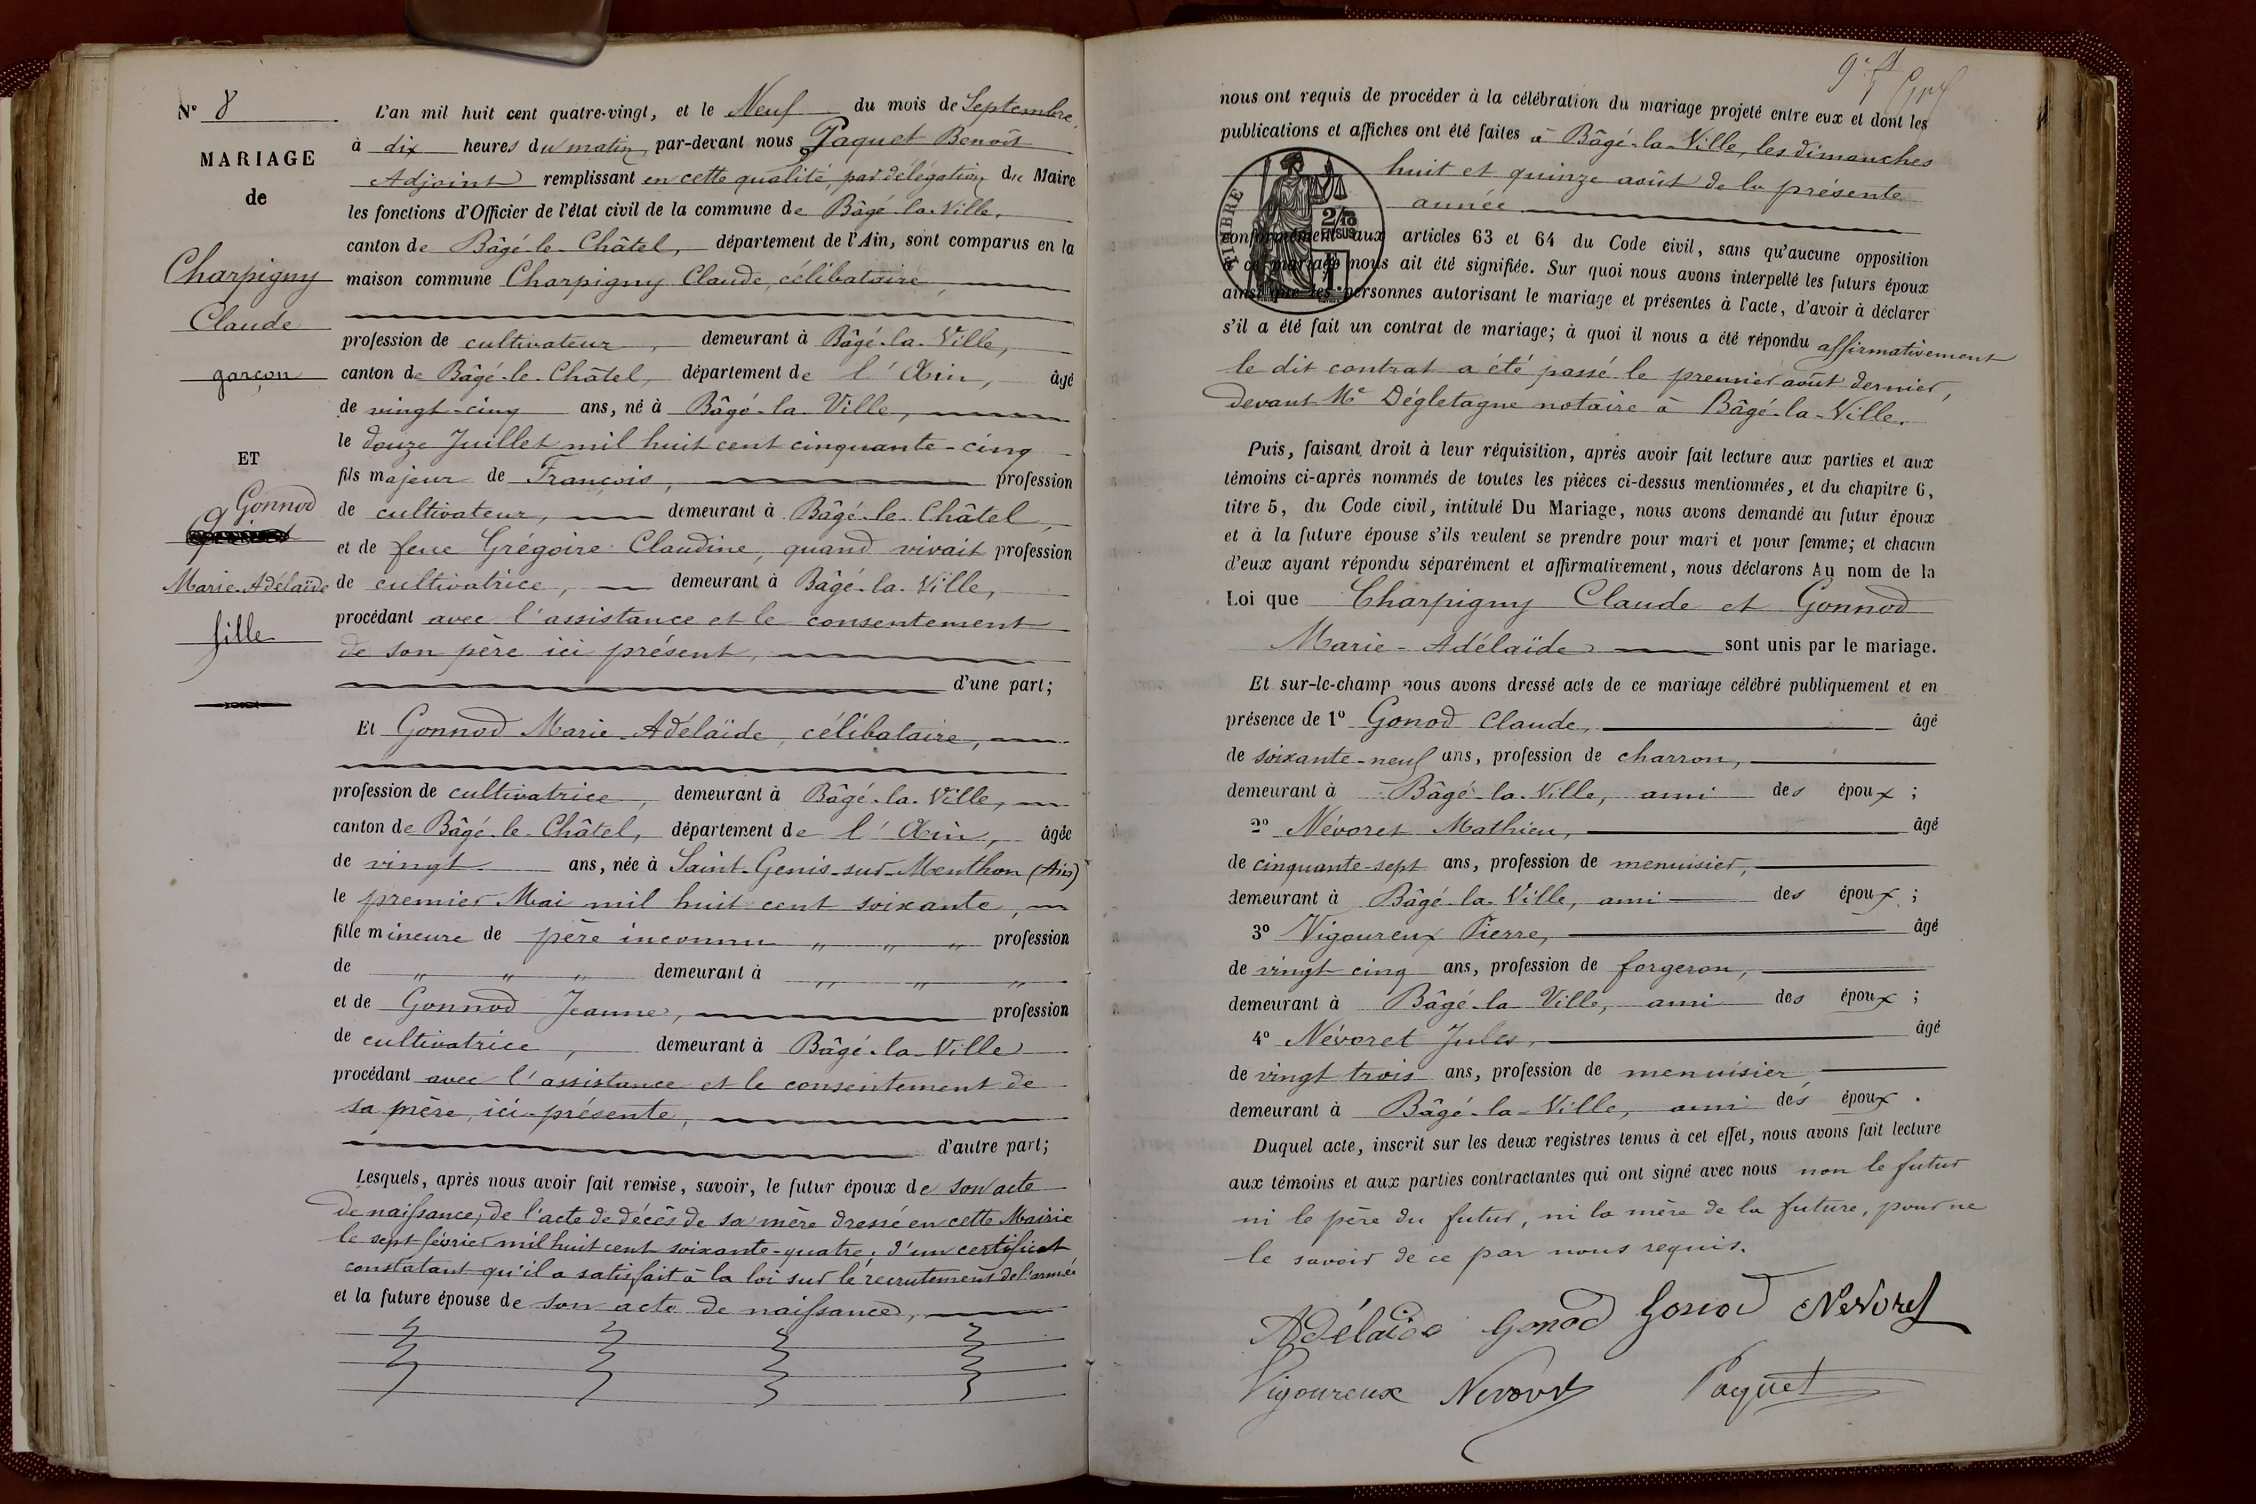 N° 8
MARIAGE
de
Charpigny
Claude
garçon
ET
Gonnod
Marie-Adélaïde
fille
L'an mil huit cent quatre-vingt, et le Neuf du mois de Septembre,
à dix heures du matin, par-devant nous Paquet Benoît
Adjoint remplissant en cette qualité, par délégation du Maire
les fonctions d'Officier de l'état civil de la commune de Bâgé-la-Ville,
canton de Bâgé-le-Châtel, département de l'Ain, sont comparus en la
maison commune Charpigny Claude, célibataire,
profession de cultivateur, demeurant à Bâgé-la-Ville,
canton de Bâgé-le-Châtel, département de l'Ain, âgé
de vingt-cinq ans, né à Bâgé-la-Ville,
le douze Juillet mil huit cent cinquante-cinq
fils majeur de François, profession
de cultivateur, demeurant à Bâgé-le-Châtel,
et de feue Grégoire Claudine, quand vivait profession
de cultivatrice, demeurant à Bâgé-la-Ville,
procédant avec l'assistance et le consentement
de son père ici présent,
d'une part;
Et Gonnod Marie-Adélaïde, célibataire,
profession de cultivatrice, demeurant à Bâgé-la-Ville,
canton de Bâgé-le-Châtel, département de l'Ain, âgée
de vingt ans, née à Saint-Genis-sur-Menthon (Ain)
le premier Mai mil huit cent soixante,
fille mineure de père inconnu " " " profession
de " " " demeurant à " " "
et de Gonnod Jeanne, profession
de cultivatrice, demeurant à Bâgé-la-Ville
procédant avec l'assistance et le consentement de
sa mère, ici-présente,
d'autre part;
Lesquels, après nous avoir fait remise, savoir, le futur époux de son acte
de naissance, de l'acte de décès de sa mère dressé en cette Mairie
le sept février mil huit cent soixante-quatre; d'un certificat
constatant qu'il a satisfait à la loi sur le recrutement de l'armée
et la future épouse de son acte de naissance,
nous ont requis de procéder à la célébration du mariage projeté entre eux et dont les
publications et affiches ont été faites à Bâgé-la-Ville, les dimanches
huit et quinze août de la présente
année
TIMBRE
2/10
EN SUS
conformément aux articles 63 et 64 du Code civil, sans qu'aucune opposition
à ce mariage nous ait été signifiée. Sur quoi nous avons interpellé les futurs époux
ainsi que les personnes autorisant le mariage et présentes à l'acte, d'avoir à déclarer
s'il a été fait un contrat de mariage; à quoi il nous a été répondu affirmativement
le dit contrat a été passé le premier août dernier,
devant Me Dégletagne notaire à Bâgé-la-Ville.
Puis, faisant droit à leur réquisition, après avoir fait lecture aux parties et aux
témoins ci-après nommés de toutes les pièces ci-dessus mentionnées, et du chapitre 6,
titre 5, du Code civil, intitulé Du Mariage, nous avons demandé au futur époux
et à la future épouse s'ils veulent se prendre pour mari et pour femme; et chacun
d'eux ayant répondu séparément et affirmativement, nous déclarons Au nom de la
Loi que Charpigny Claude et Gonnod
Marie-Adélaïde sont unis par le mariage.
Et sur-le-champ nous avons dressé acte de ce mariage célébré publiquement et en
présence de 1° Gonod Claude, âgé
de soixante-neuf ans, profession de charron,
demeurant à Bâgé-la-Ville, ami des époux;
2° Névoret Mathieu, âgé
de cinquante-sept ans, profession de menuisier,
demeurant à Bâgé-la-Ville, ami des époux;
3° Vigoureux Pierre, âgé
de vingt cinq ans, profession de forgeron,
demeurant à Bâgé-la-Ville, ami des époux;
4° Névoret Jules, âgé
de vingt trois ans, profession de menuisier
demeurant à Bâgé-la-Ville, ami des époux.
Duquel acte, inscrit sur les deux registres tenus à cet effet, nous avons fait lecture
aux témoins et aux parties contractantes qui ont signé avec nous non le futur
ni le père du futur, ni la mère de la future, pour ne
le savoir de ce par nous requis.
Adélaide Gonod Gonod Nevoret
Vigoureux Nevoret Paquet